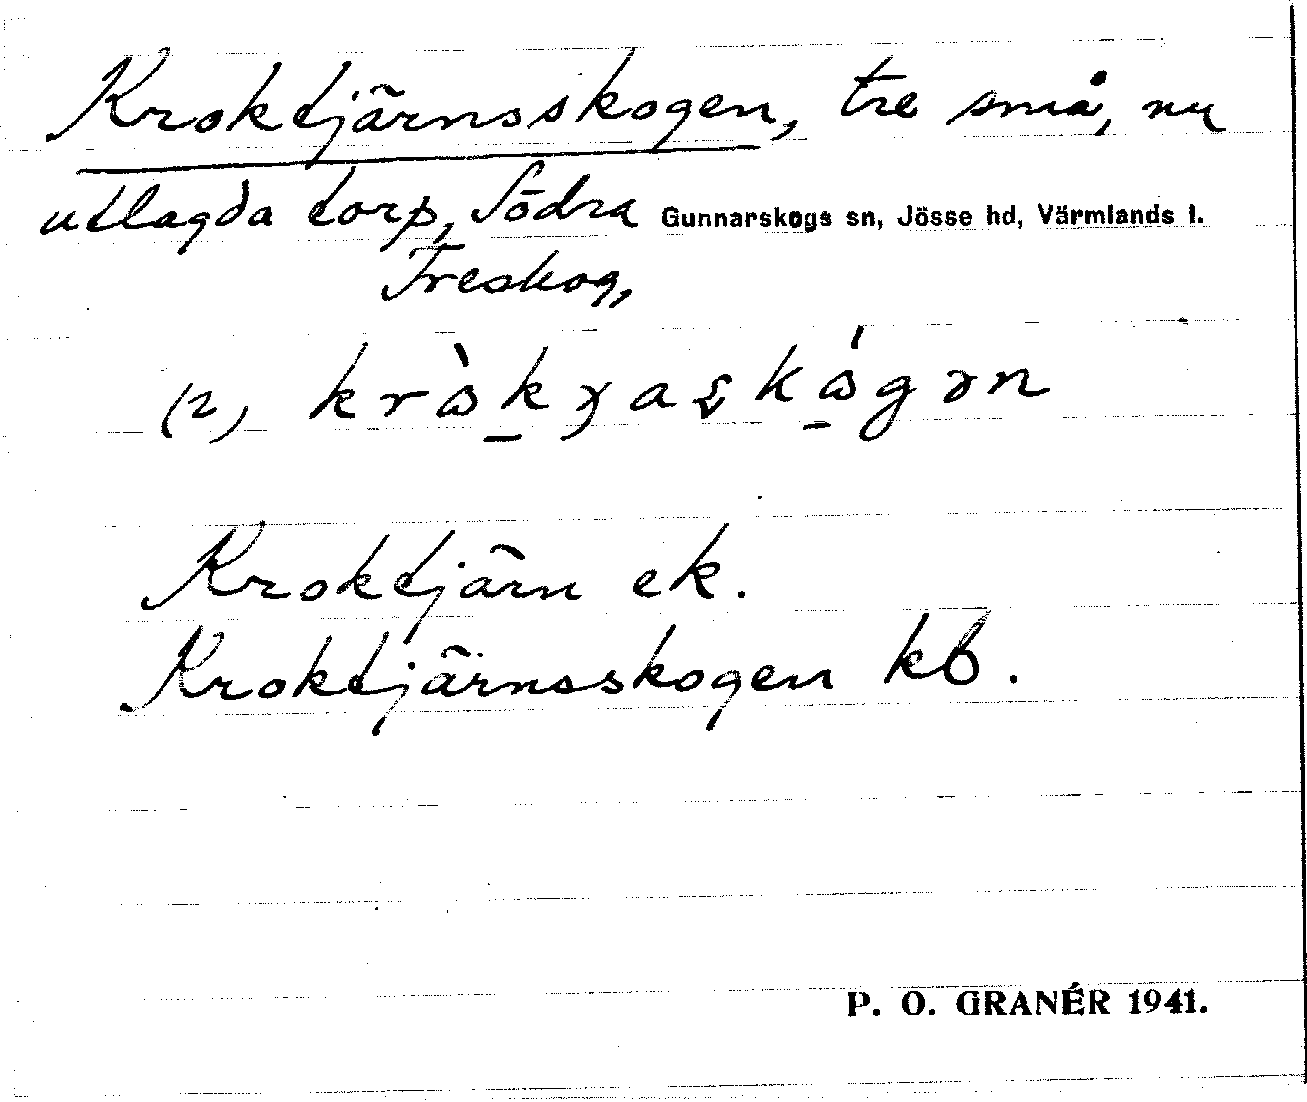 Kroktjärnsskogen, tre små, nu
utlagda torp, Södra Gunnarskogs sn, Jösse hd, Värmlands l.
Treskog,
(2)
Kroktjärn ek.
Kroktjärnsskogen kb.
P. O. GRANÉR 1941.